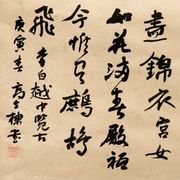 盡錦衣宮女
如花滿春殿祗
今惟有鷓鴣
飛 李白越中覽古
庚寅春高
書